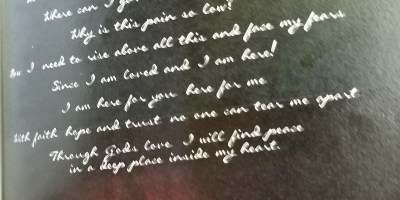 Where can I g
Why is this pain so low?
I need to rise above all this and face my fears
Since I am loved and I am here!
I am here for you here for me
With faith hope and trust no one can tear me apart
Through Gods love I will find peace
in a deep place inside my heart.